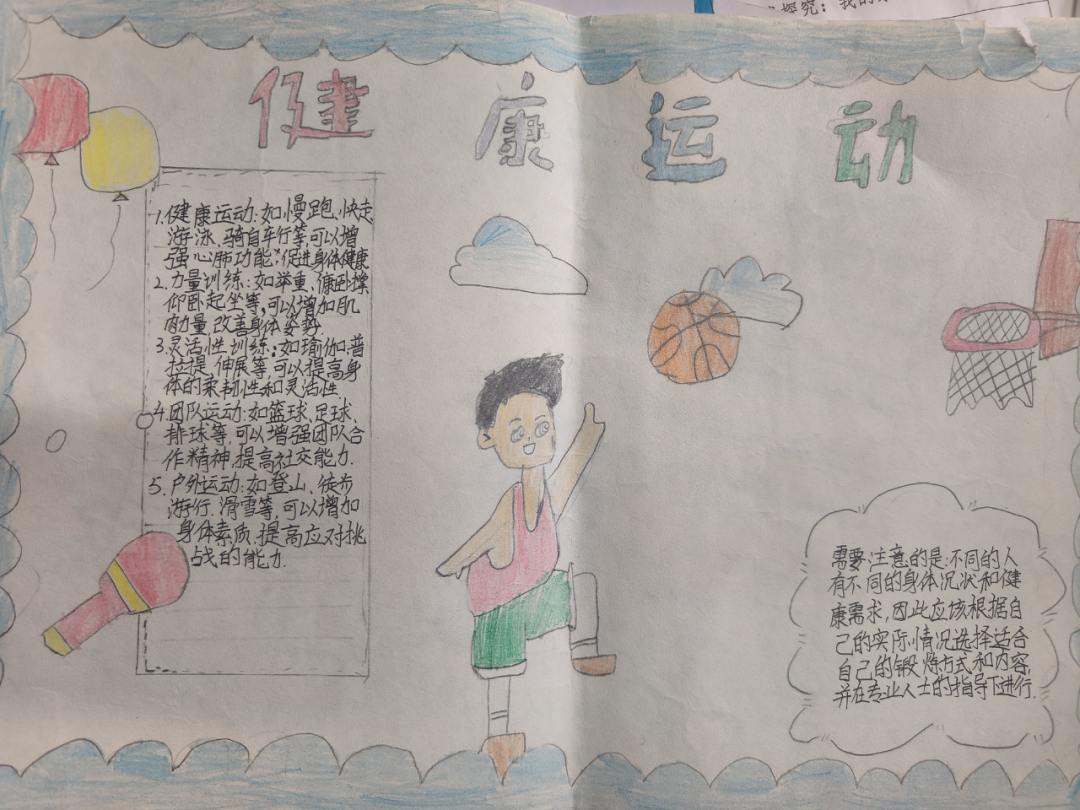 探究：我的
健康运动
1.健康运动:如慢跑、快走
游泳、骑自车行等,可以增
强心肺功能,促进身体健康
2.力量训练:如举重、俯卧撑
仰卧起坐等,可以增加肌
肉力量,改善身体姿势.
3.灵活性训练:如瑜伽.普
拉提、伸展等,可以提高身
体的柔韧性和灵活性
4.团队运动:如篮球、足球、
排球等,可以增强团队合
作精神,提高社交能力.
5.户外运动:如登山、徒步
游行.滑雪等,可以增加
身体素质.提高应对挑
战的能力.
需要注意的是:不同的人
有不同的身体况状和健
康需求,因此应该根据自
己的实际情况选择适合
自己的锻炼方式和内容,
并在专业人士的指导下进行.